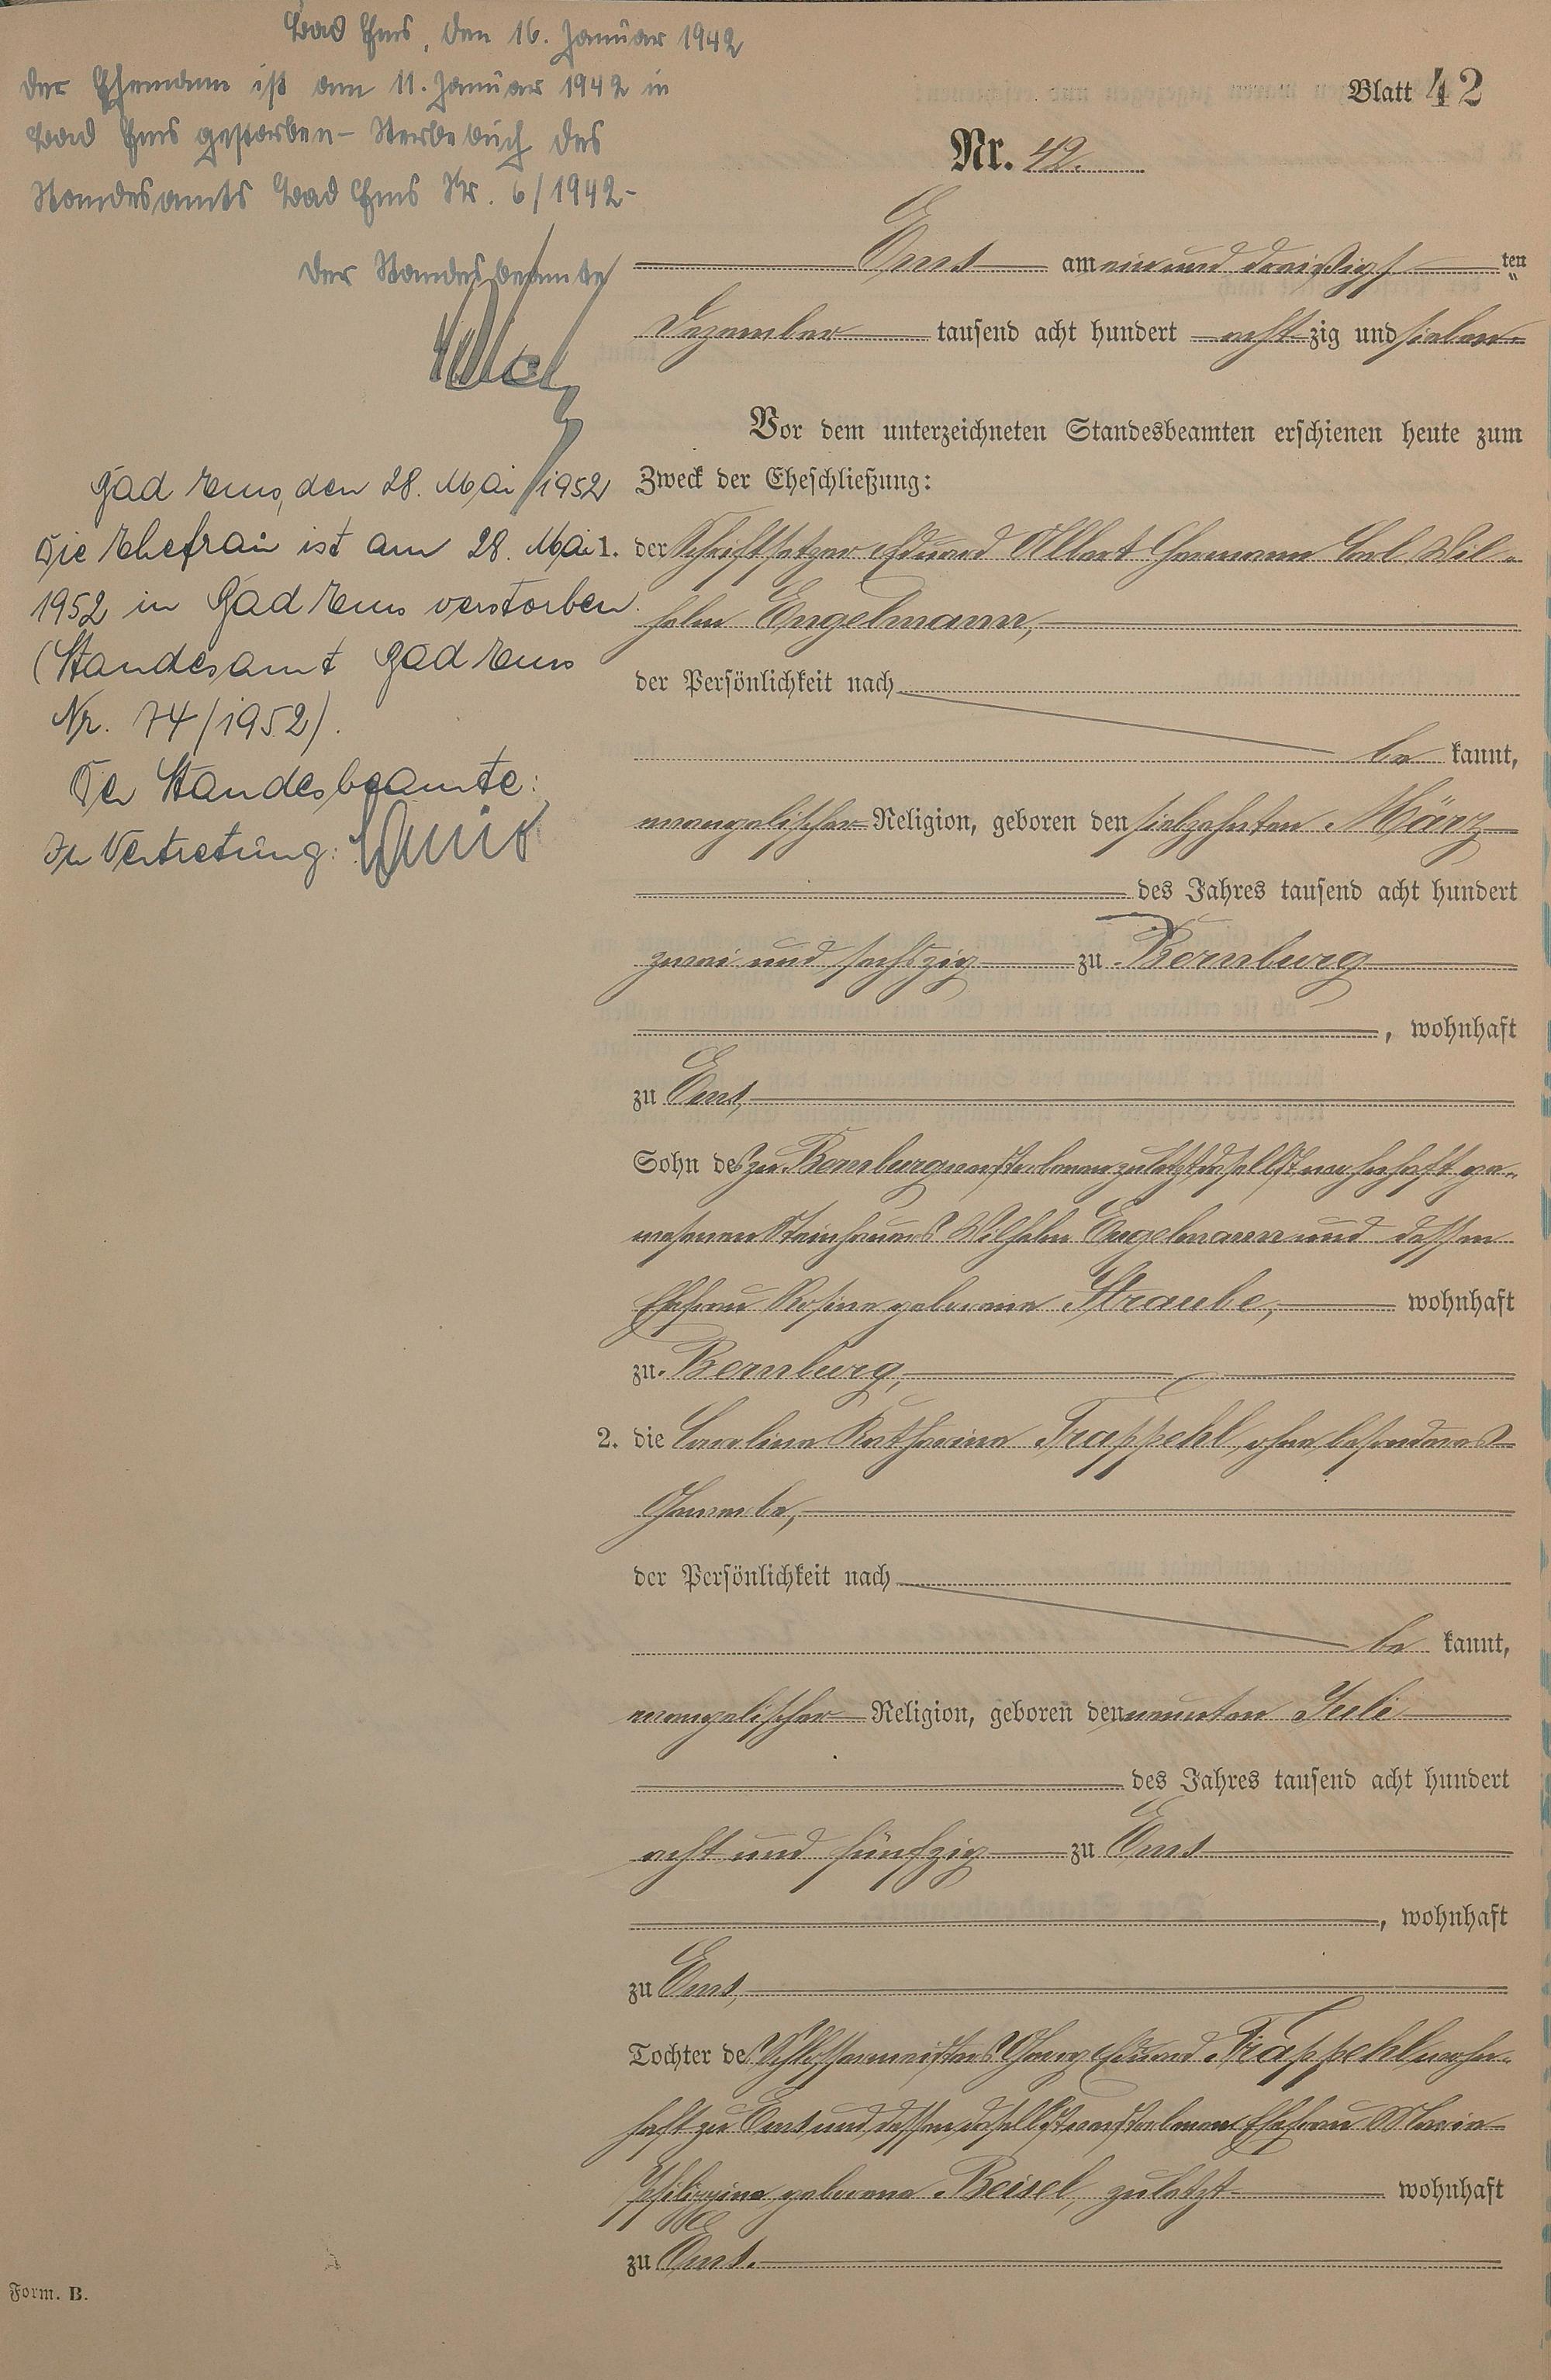 Bad Ems, den 16. Januar 1942
Der Ehemann ist am 11. Januar 1942 in
Bad Ems gestorben – Sterbebuch des
Standesamts Bad Ems Nr. 6/1942 –
Der Standesbeamte
Bad Ems, den 28. Mai 1952
Die Ehefrau ist am 28. Mai
1952 in Bad Ems verstorben.
(Standesamt Bad Ems
Nr. 74/1952).
Der Standesbeamte:
In Vertretung:
Blatt 42
Nr. 42.
Ems am ein und dreißigsten
Dezember tausend acht hundert achtzig und sieben.
Vor dem unterzeichneten Standesbeamten erschienen heute zum
Zweck der Eheschließung:
1. der Schriftsetzer Eduard Albert Hermann Carl Wil-
helm Engelmann,
der Persönlichkeit nach
be kannt,
evangelischer Religion, geboren den siebzehnten März
des Jahres tausend acht hundert
zwei und sechszig zu Bernburg
, wohnhaft
zu Ems,
Sohn des zu Bernburg verstorbenen zuletzt daselbst wohnhaft ge-
wesenen Steinhauers Wilhelm Engelmann und dessen
Ehefrau Rosine geborene Straube, wohnhaft
zu Bernburg,
2. die Caroline Katharina Trappehl, ohne besonderes
Gewerbe,
der Persönlichkeit nach
be kannt,
evangelischer Religion, geboren den neunten Juli
des Jahres tausend acht hundert
acht und fünfzig zu Ems
, wohnhaft
zu Ems,
Tochter des Schlossermeisters Georg Eduard Trappehl wohn-
haft zu Ems und dessen daselbst verstorbenen Ehefrau Marie
Philippine geborene Beisel, zuletzt wohnhaft
zu Ems.
Form. B.